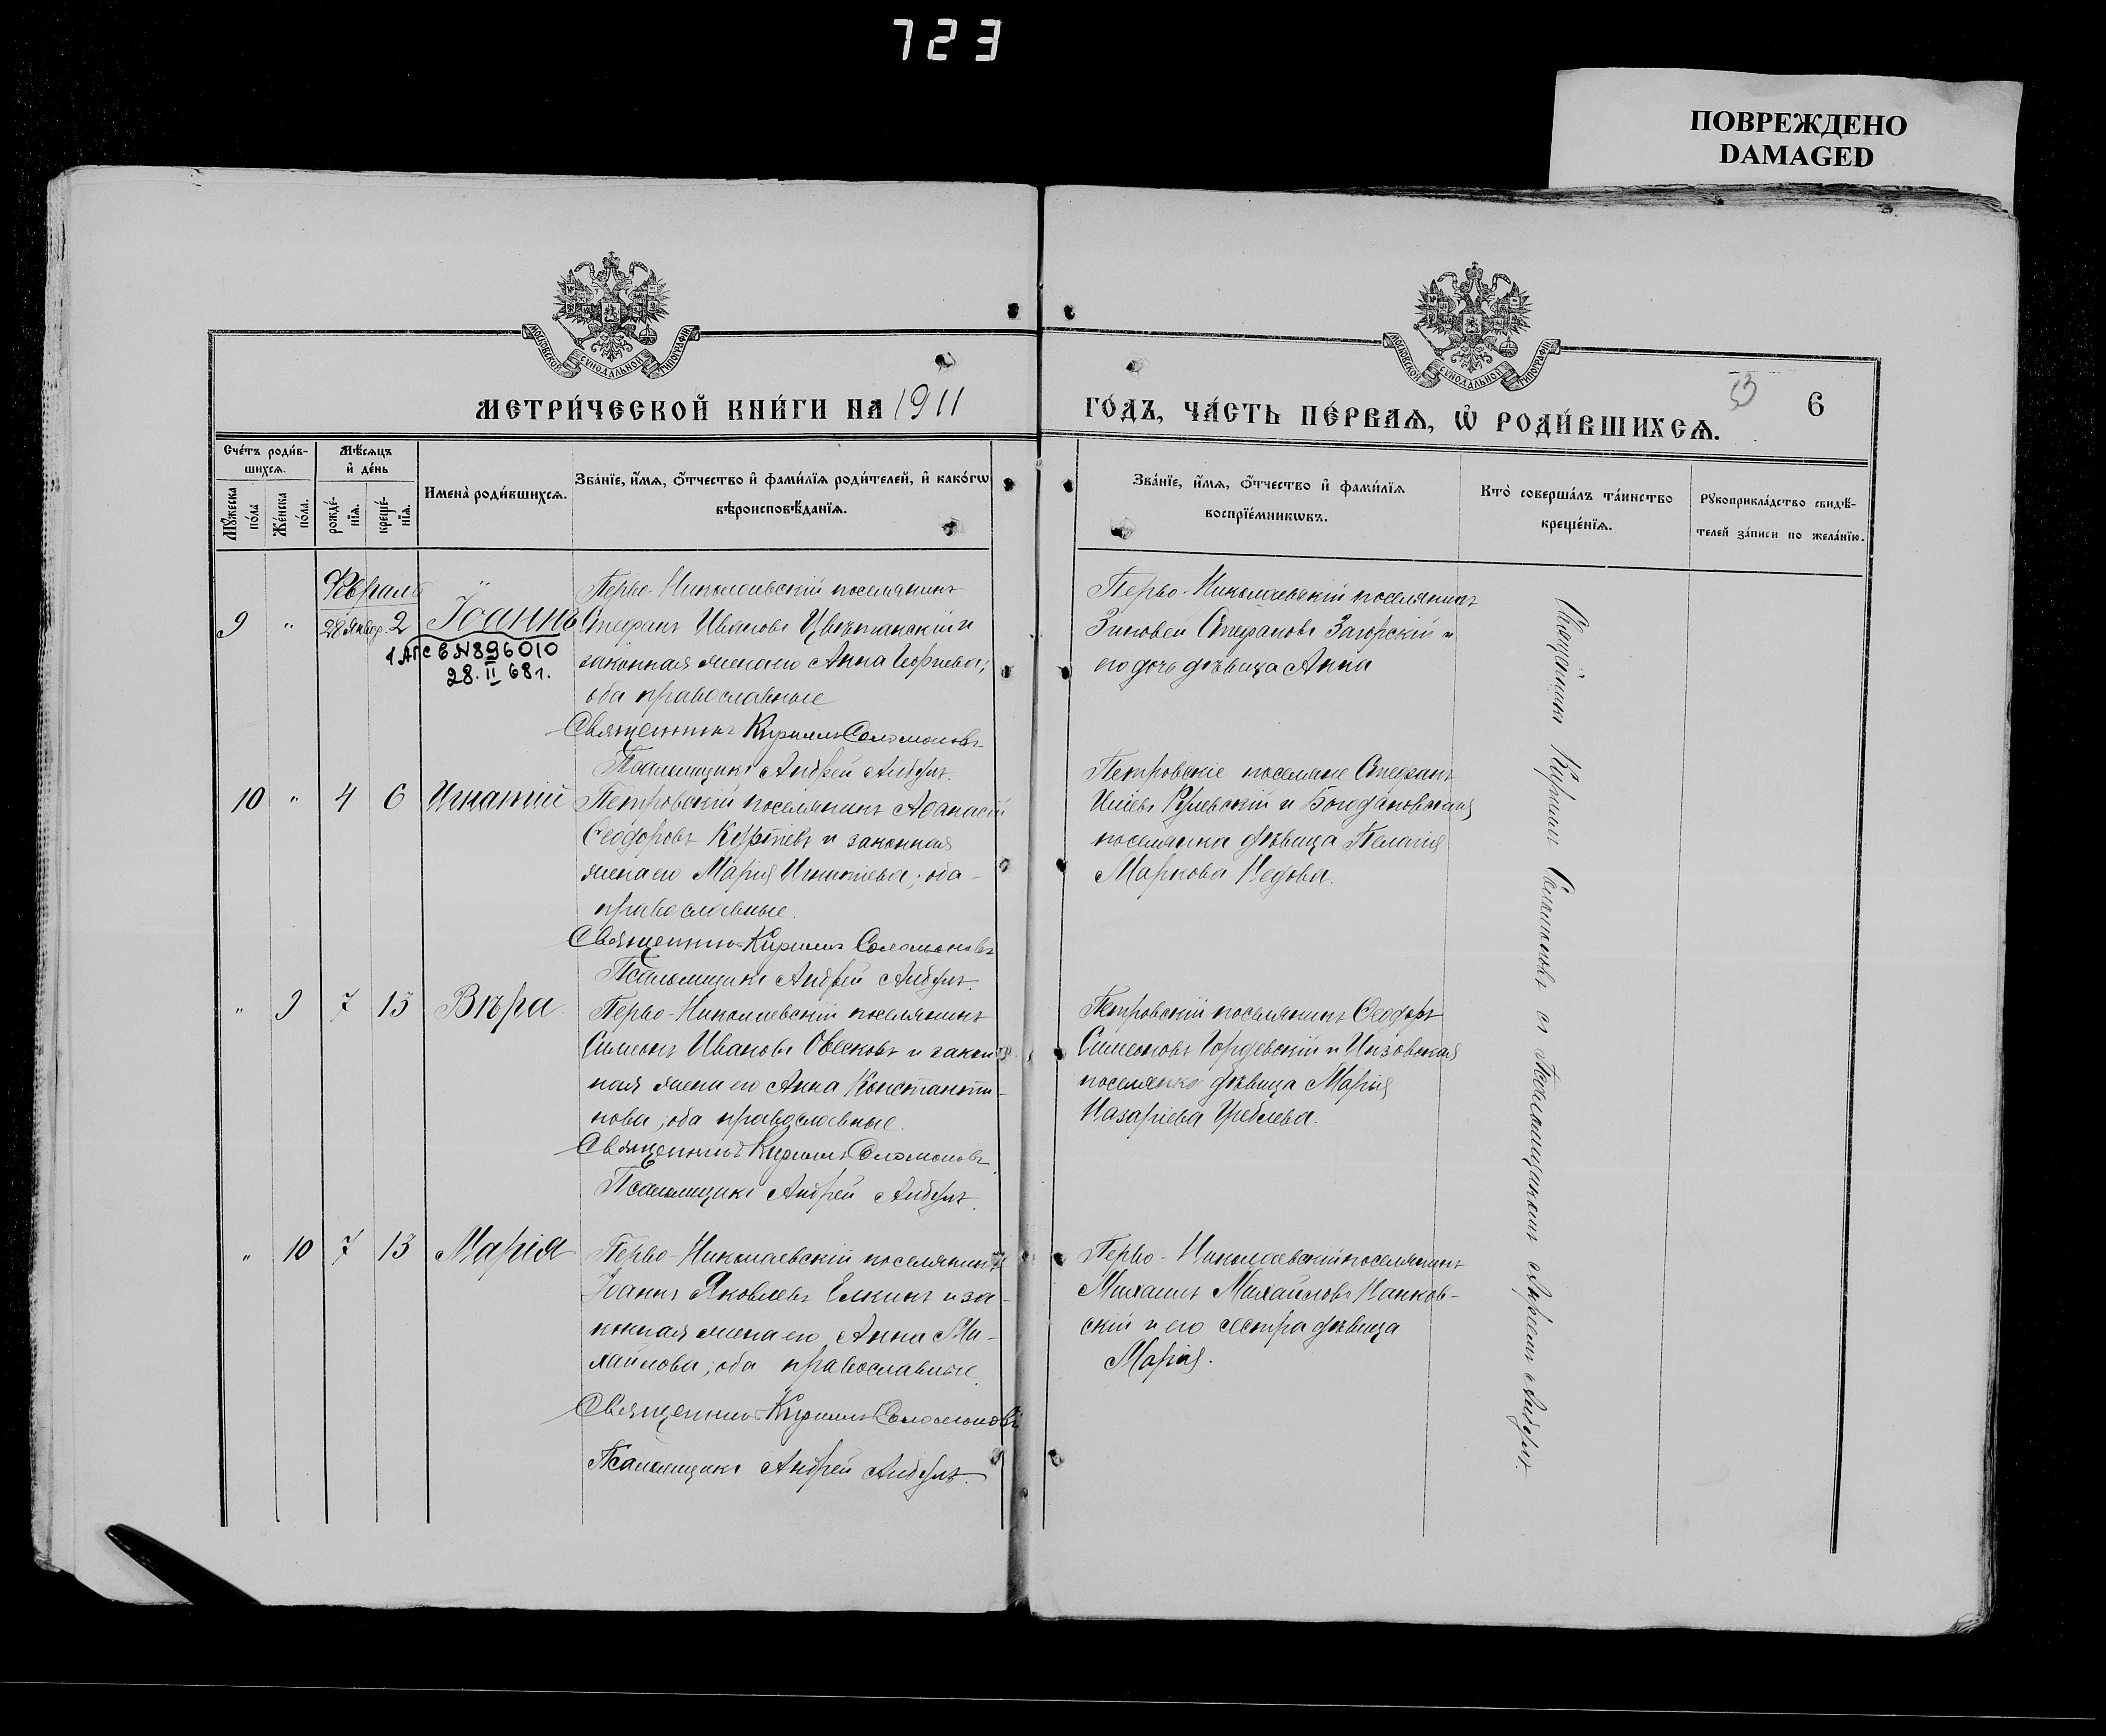 723
ПОВРЕЖДЕНО
DAMAGED
МОСКОВСКОЙ СѴНОДАЛЬНОЙ ТИПОГРАФІИ
МОСКОВСКОЙ СѴНОДАЛЬНОЙ ТИПОГРАФІИ
МЕТРИ́ЧЕСКОЙ КНИ́ГИ НА 1911
ГО́ДЪ, ЧА́СТЬ ПЕ́РВАѦ, Ѡ҆ РОДИ́ВШИХСѦ.
6
Сче́тъ роди́в-
шихсѧ.
Мꙋ́жеска
по́ла
Же́нска
по́ла.
Мѣ́сѧцъ
и҆ де́нь
рожде́-
нїѧ.
креще́-
нїѧ.
Имена̀ роди́вшихсѧ.
Зва́нїе, и҆́мѧ, ѻ҆́тчество и҆ фами́лїѧ роди́телей, и҆ како́гѡ
вѣроисповѣ́данїѧ.
Зва́нїе, и҆́мѧ, ѻ҆́тчество и҆ фами́лїѧ
воспрїе́мникѡвъ.
Кто̀ соверша́лъ та́инство
креще́нїѧ.
Рꙋкоприкла́дство свидѣ́-
телей за́писи по жела́нїю.
Февраль
9 " 28 Январ. 2 Іоаннъ
1 АГС 6 N896010
28. II 68г.
Перво-Николаевскій поселянинъ
Стефанъ Ивановъ Цвѣтанскій и
законная жена его Анна Георгіева;
оба православные
Священникъ Кириллъ Соломоновъ
Псаломщикъ Андрей
Перво-Николаевскій поселянинъ
Зиновей Стефановъ Загорскій и
его дочь дѣвица Анна
10 " 4 6 Игнатій
Петровскій поселянинъ Аѳанасій
Ѳеодоровъ Куртевъ и законная
жена его Марія Игнатіева; оба
православные.
Священникъ Кириллъ Соломоновъ
Псаломщикъ Андрей
Петровскіе поселяне Стефанъ
Иліевъ и Богдановская
поселянка дѣвица Пелагія
Маркова Недова.
" 9 7 13 Вѣра
Перво-Николаевскій поселянинъ
Симеонъ Ивановъ Овесковъ и закон
ная жена его Анна Константи-
нова, оба православные.
Священникъ Кириллъ Соломоновъ
Псаломщикъ Андрей
Петровскій поселянинъ Ѳеодоръ
Симеоновъ и
поселянка дѣвица Марія
Назаріева
" 10 7 13 Марія
Перво-Николаевскій поселянинъ
Іоаннъ Яковлевъ Елкинъ и за-
конная жена его Анна Ми-
хайлова, оба православные.
Священникъ Кириллъ Соломоновъ
Псаломщикъ Андрей
Перво-Николаевскій поселянинъ
Михаилъ Михайловъ Панков-
скій и его сестра дѣвица
Марія.
Священникъ Кириллъ Соломоновъ съ Псаломщикомъ Андреемъ